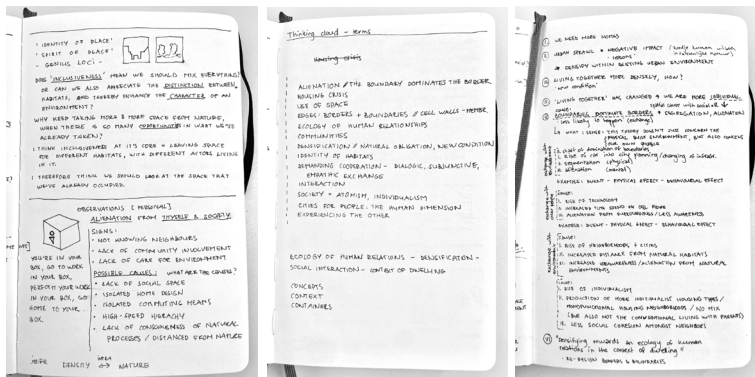 'IDENTITY OF PLACE'
'SPIRIT OF PLACE'
- GENIUS LOCI -
DOES 'INCLUSIVENESS' MEAN WE SHOULD MIX EVERYTHING
OR CAN WE ALSO APPRECIATE THE DISTINCTION BETWEEN
HABITATS, AND THEREBY ENHANCE THE CHARACTER OF AN
ENVIRONMENT?
WHY KEEP TAKING MORE & MORE SPACE FROM NATURE,
WHEN THERE IS SO MANY OPPORTUNITIES IN WHAT WE'VE
ALREADY TAKEN?
I THINK INCLUSIVENESS AT IT'S CORE = LEAVING SPACE
FOR DIFFERENT HABITATS, WITH DIFFERENT ACTORS LIVING
IN IT.
I THEREFORE THINK WE SHOULD LOOK AT THE SPACE THAT
WE'VE ALREADY OCCUPIED.
OBSERVATIONS [PERSONAL]
ALIENATION FROM THYSELF & SOCIETY
SIGNS:
• NOT KNOWING NEIGHBOURS
• LACK OF COMMUNITY INVOLVEMENT
• LACK OF CARE FOR ENVIRONMENT
POSSIBLE CAUSES: WHAT ARE THE
• LACK OF SOCIAL SPACE
• ISOLATED HOME DESIGN
• ISOLATED COMMUTING MEANS
• HIGH-SPEED HIERACHY
• LACK OF CONSCIOUSNESS OF NATURAL
PROCESSES / DISTANCED FROM NATURE
YOU'RE IN YOUR
BOX, GO TO WORK
IN YOUR BOX,
PERFORM YOUR WORK
IN YOUR BOX, GO
HOME TO YOUR
BOX.
DENSITY ↔ NATURE
Thinking cloud - terms
Housing crisis
ALIENATION // THE BOUNDARY DOMINATES THE BORDER
HOUSING CRISIS
LAY OF SPACE
EDGES: BORDERS + BOUNDARIES // CELL WALLS - MEMBER.
ECOLOGY OF HUMAN RELATIONSHIPS
COMMUNITIES
DENSIFICATION // NATURAL OBLIGATION, NEW CONDITION
IDENTITY OF HABITATS
DEMANDING COOPERATION - DIALOGIC, SUBJUNCTIVE,
EMPATHIC EXCHANGE
INTERACTION
SOCIETY = ATOMISM, INDIVIDUALISM
CITIES FOR PEOPLE: THE HUMAN DIMENSION
EXPERIENCING THE OTHER
ECOLOGY OF HUMAN RELATIONS - DENSIFICATION -
SOCIAL INTERACTION - CONTEXT OF DWELLING
CONCEPTS
CONTEXT
CONTAINERS
WE NEED MORE HOMES
URBAN SPRAWL = NEGATIVE IMPACT
DENSIFY WITHIN EXISTING URBAN ENVIRONMENT
LIVING TOGETHER MORE DENSELY, HOW?
'new condition'
'LIVING TOGETHER' HAS CHANGED & WE ARE MORE INDIVIDUAL
BOUNDARIES DOMINATE BORDERS = SEGREGATION, ALIENATION
EXAMPLE: EVENT - PHYSICAL EFFECT - BEHAVIOURAL EFFECT
Cause:
I. RISE OF TECHNOLOGY
II. INCREASED TIME SPEND ON CELL PHONE
III. ALIENATION FROM SURROUNDINGS/LESS AWARENESS
EXAMPLE: EVENT - PHYSICAL EFFECT - BEHAVIOURAL EFFECT
Cause:
I. RISE OF NEIGHBORHOODS + CITIES
II. INCREASED DISTANCE FROM NATURAL HABITATS
III. ALIENATION FROM NATURAL
ENVIRONMENTS
Cause:
I. RISE OF INDIVIDUALISM
II. PRODUCTION OF MORE INDIVIDUALIST HOUSING TYPES /
MONOFUNCTIONAL HOUSING NEIGHBORHOODS / NO MIX
(BUT ALSO NOT THE CONVENTIONAL LIVING WITH PARENTS)
III. LESS SOCIAL COHESION AMONGST NEIGHBORS
"Densifying towards an ecology of human
relations in the context of dwelling"
- RE-DESIGN BORDERS & BOUNDARIES